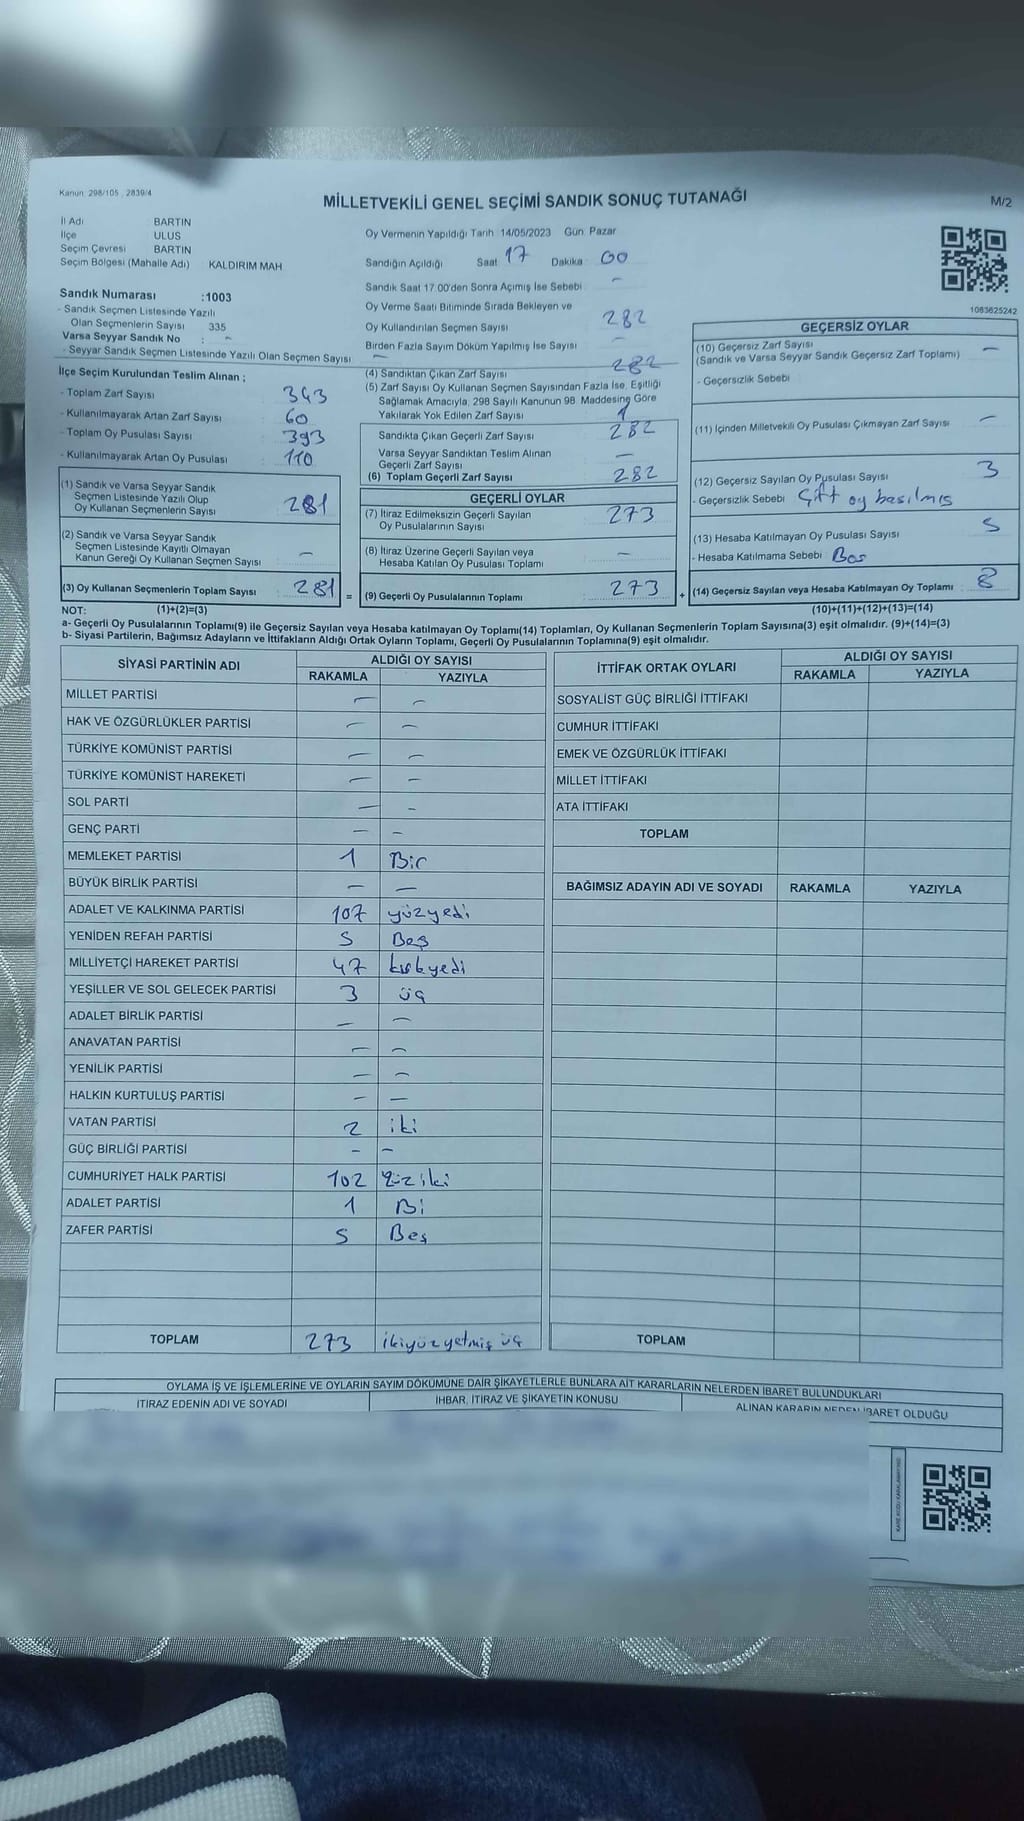 Kanun: 298/105 , 2839/4
MİLLETVEKİLİ GENEL SEÇİMİ SANDIK SONUÇ TUTANAĞI
M/2
İl Adı BARTIN
İlçe ULUS
Seçim Çevresi BARTIN
Seçim Bölgesi (Mahalle Adı) KALDIRIM MAH
Sandık Numarası :1003
- Sandık Seçmen Listesinde Yazılı
Olan Seçmenlerin Sayısı 335
Varsa Seyyar Sandık No : -
- Seyyar Sandık Seçmen Listesinde Yazılı Olan Seçmen Sayısı -
İlçe Seçim Kurulundan Teslim Alınan ;
- Toplam Zarf Sayısı 343
- Kullanılmayarak Artan Zarf Sayısı 60
- Toplam Oy Pusulası Sayısı 393
- Kullanılmayarak Artan Oy Pusulası 110
(1) Sandık ve Varsa Seyyar Sandık
Seçmen Listesinde Yazılı Olup
Oy Kullanan Seçmenlerin Sayısı 281
(2) Sandık ve Varsa Seyyar Sandık
Seçmen Listesinde Kayıtlı Olmayan
Kanun Gereği Oy Kullanan Seçmen Sayısı -
(3) Oy Kullanan Seçmenlerin Toplam Sayısı 281 =
Oy Vermenin Yapıldığı Tarih 14/05/2023 Gün: Pazar
Sandığın Açıldığı Saat 17 Dakika 00
Sandık Saat 17.00'den Sonra Açımış İse Sebebi -
Oy Verme Saati Bitiminde Sırada Bekleyen ve
Oy Kullandırılan Seçmen Sayısı 282
Birden Fazla Sayım Döküm Yapılmış İse Sayısı -
(4) Sandıktan Çıkan Zarf Sayısı 282
(5) Zarf Sayısı Oy Kullanan Seçmen Sayısından Fazla İse, Eşitliği
Sağlamak Amacıyla, 298 Sayılı Kanunun 98. Maddesine Göre
Yakılarak Yok Edilen Zarf Sayısı 1
Sandıkta Çıkan Geçerli Zarf Sayısı 282
Varsa Seyyar Sandıktan Teslim Alınan
Geçerli Zarf Sayısı -
(6) Toplam Geçerli Zarf Sayısı 282
GEÇERLİ OYLAR
(7) İtiraz Edilmeksizin Geçerli Sayılan
Oy Pusulalarının Sayısı 273
(8) İtiraz Üzerine Geçerli Sayılan veya
Hesaba Katılan Oy Pusulası Toplamı -
(9) Geçerli Oy Pusulalarının Toplamı 273 +
1083625242
GEÇERSİZ OYLAR
(10) Geçersiz Zarf Sayısı -
(Sandık ve Varsa Seyyar Sandık Geçersiz Zarf Toplamı)
- Geçersizlik Sebebi
(11) İçinden Milletvekili Oy Pusulası Çıkmayan Zarf Sayısı -
(12) Geçersiz Sayılan Oy Pusulası Sayısı 3
- Geçersizlik Sebebi Çift oy basılmış
(13) Hesaba Katılmayan Oy Pusulası Sayısı 5
- Hesaba Katılmama Sebebi Boş
(14) Geçersiz Sayılan veya Hesaba Katılmayan Oy Toplamı 8
NOT: (1)+(2)=(3) (10)+(11)+(12)+(13)=(14)
a- Geçerli Oy Pusulalarının Toplamı(9) ile Geçersiz Sayılan veya Hesaba katılmayan Oy Toplamı(14) Toplamları, Oy Kullanan Seçmenlerin Toplam Sayısına(3) eşit olmalıdır. (9)+(14)=(3)
b- Siyasi Partilerin, Bağımsız Adayların ve İttifakların Aldığı Ortak Oyların Toplamı, Geçerli Oy Pusulalarının Toplamına(9) eşit olmalıdır.
SİYASİ PARTİNİN ADI ALDIĞI OY SAYISI
RAKAMLA YAZIYLA
MİLLET PARTİSİ - -
HAK VE ÖZGÜRLÜKLER PARTİSİ - -
TÜRKİYE KOMÜNİST PARTİSİ - -
TÜRKİYE KOMÜNİST HAREKETİ - -
SOL PARTİ - -
GENÇ PARTİ - -
MEMLEKET PARTİSİ 1 Bir
BÜYÜK BİRLİK PARTİSİ - -
ADALET VE KALKINMA PARTİSİ 107 yüzyedi
YENİDEN REFAH PARTİSİ 5 Beş
MİLLİYETÇİ HAREKET PARTİSİ 47 kırkyedi
YEŞİLLER VE SOL GELECEK PARTİSİ 3 üç
ADALET BİRLİK PARTİSİ - -
ANAVATAN PARTİSİ - -
YENİLİK PARTİSİ - -
HALKIN KURTULUŞ PARTİSİ - -
VATAN PARTİSİ 2 iki
GÜÇ BİRLİĞİ PARTİSİ - -
CUMHURİYET HALK PARTİSİ 102 yüz iki
ADALET PARTİSİ 1 Bi
ZAFER PARTİSİ 5 Beş
TOPLAM 273 ikiyüzyetmiş üç
İTTİFAK ORTAK OYLARI ALDIĞI OY SAYISI
RAKAMLA YAZIYLA
SOSYALİST GÜÇ BİRLİĞİ İTTİFAKI
CUMHUR İTTİFAKI
EMEK VE ÖZGÜRLÜK İTTİFAKI
MİLLET İTTİFAKI
ATA İTTİFAKI
TOPLAM
BAĞIMSIZ ADAYIN ADI VE SOYADI RAKAMLA YAZIYLA
TOPLAM
OYLAMA İŞ VE İŞLEMLERİNE VE OYLARIN SAYIM DÖKÜMÜNE DAİR ŞİKAYETLERLE BUNLARA AİT KARARLARIN NELERDEN İBARET BULUNDUKLARI
İTİRAZ EDENİN ADI VE SOYADI İHBAR, İTİRAZ VE ŞİKAYETİN KONUSU ALINAN KARARIN NEDEN İBARET OLDUĞU